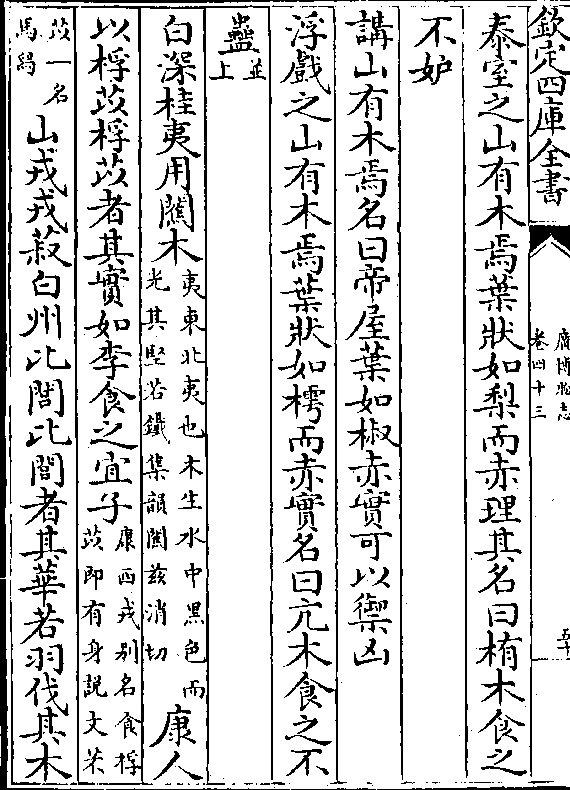 欽定四庫全書
廣博物志
卷四十三
五十
泰室之山有木焉葉狀如梨而赤理其名曰栯木食之
不妒
講山有木焉名曰帝屋葉如椒赤實可以禦凶
浮戲之山有木焉葉狀如樗而赤實名曰亢木食之不
蠱並
上
白深桂夷用闟木夷東北夷也木生水中黑色而
光其堅若鐵集韻闟茲消切康人
以桴苡桴苡者其實如李食之宜子康西戎别名食桴
苡即有身說文芣
苡一名
馬舄山戎戎菽白州比閭比閭者其華若羽伐其木